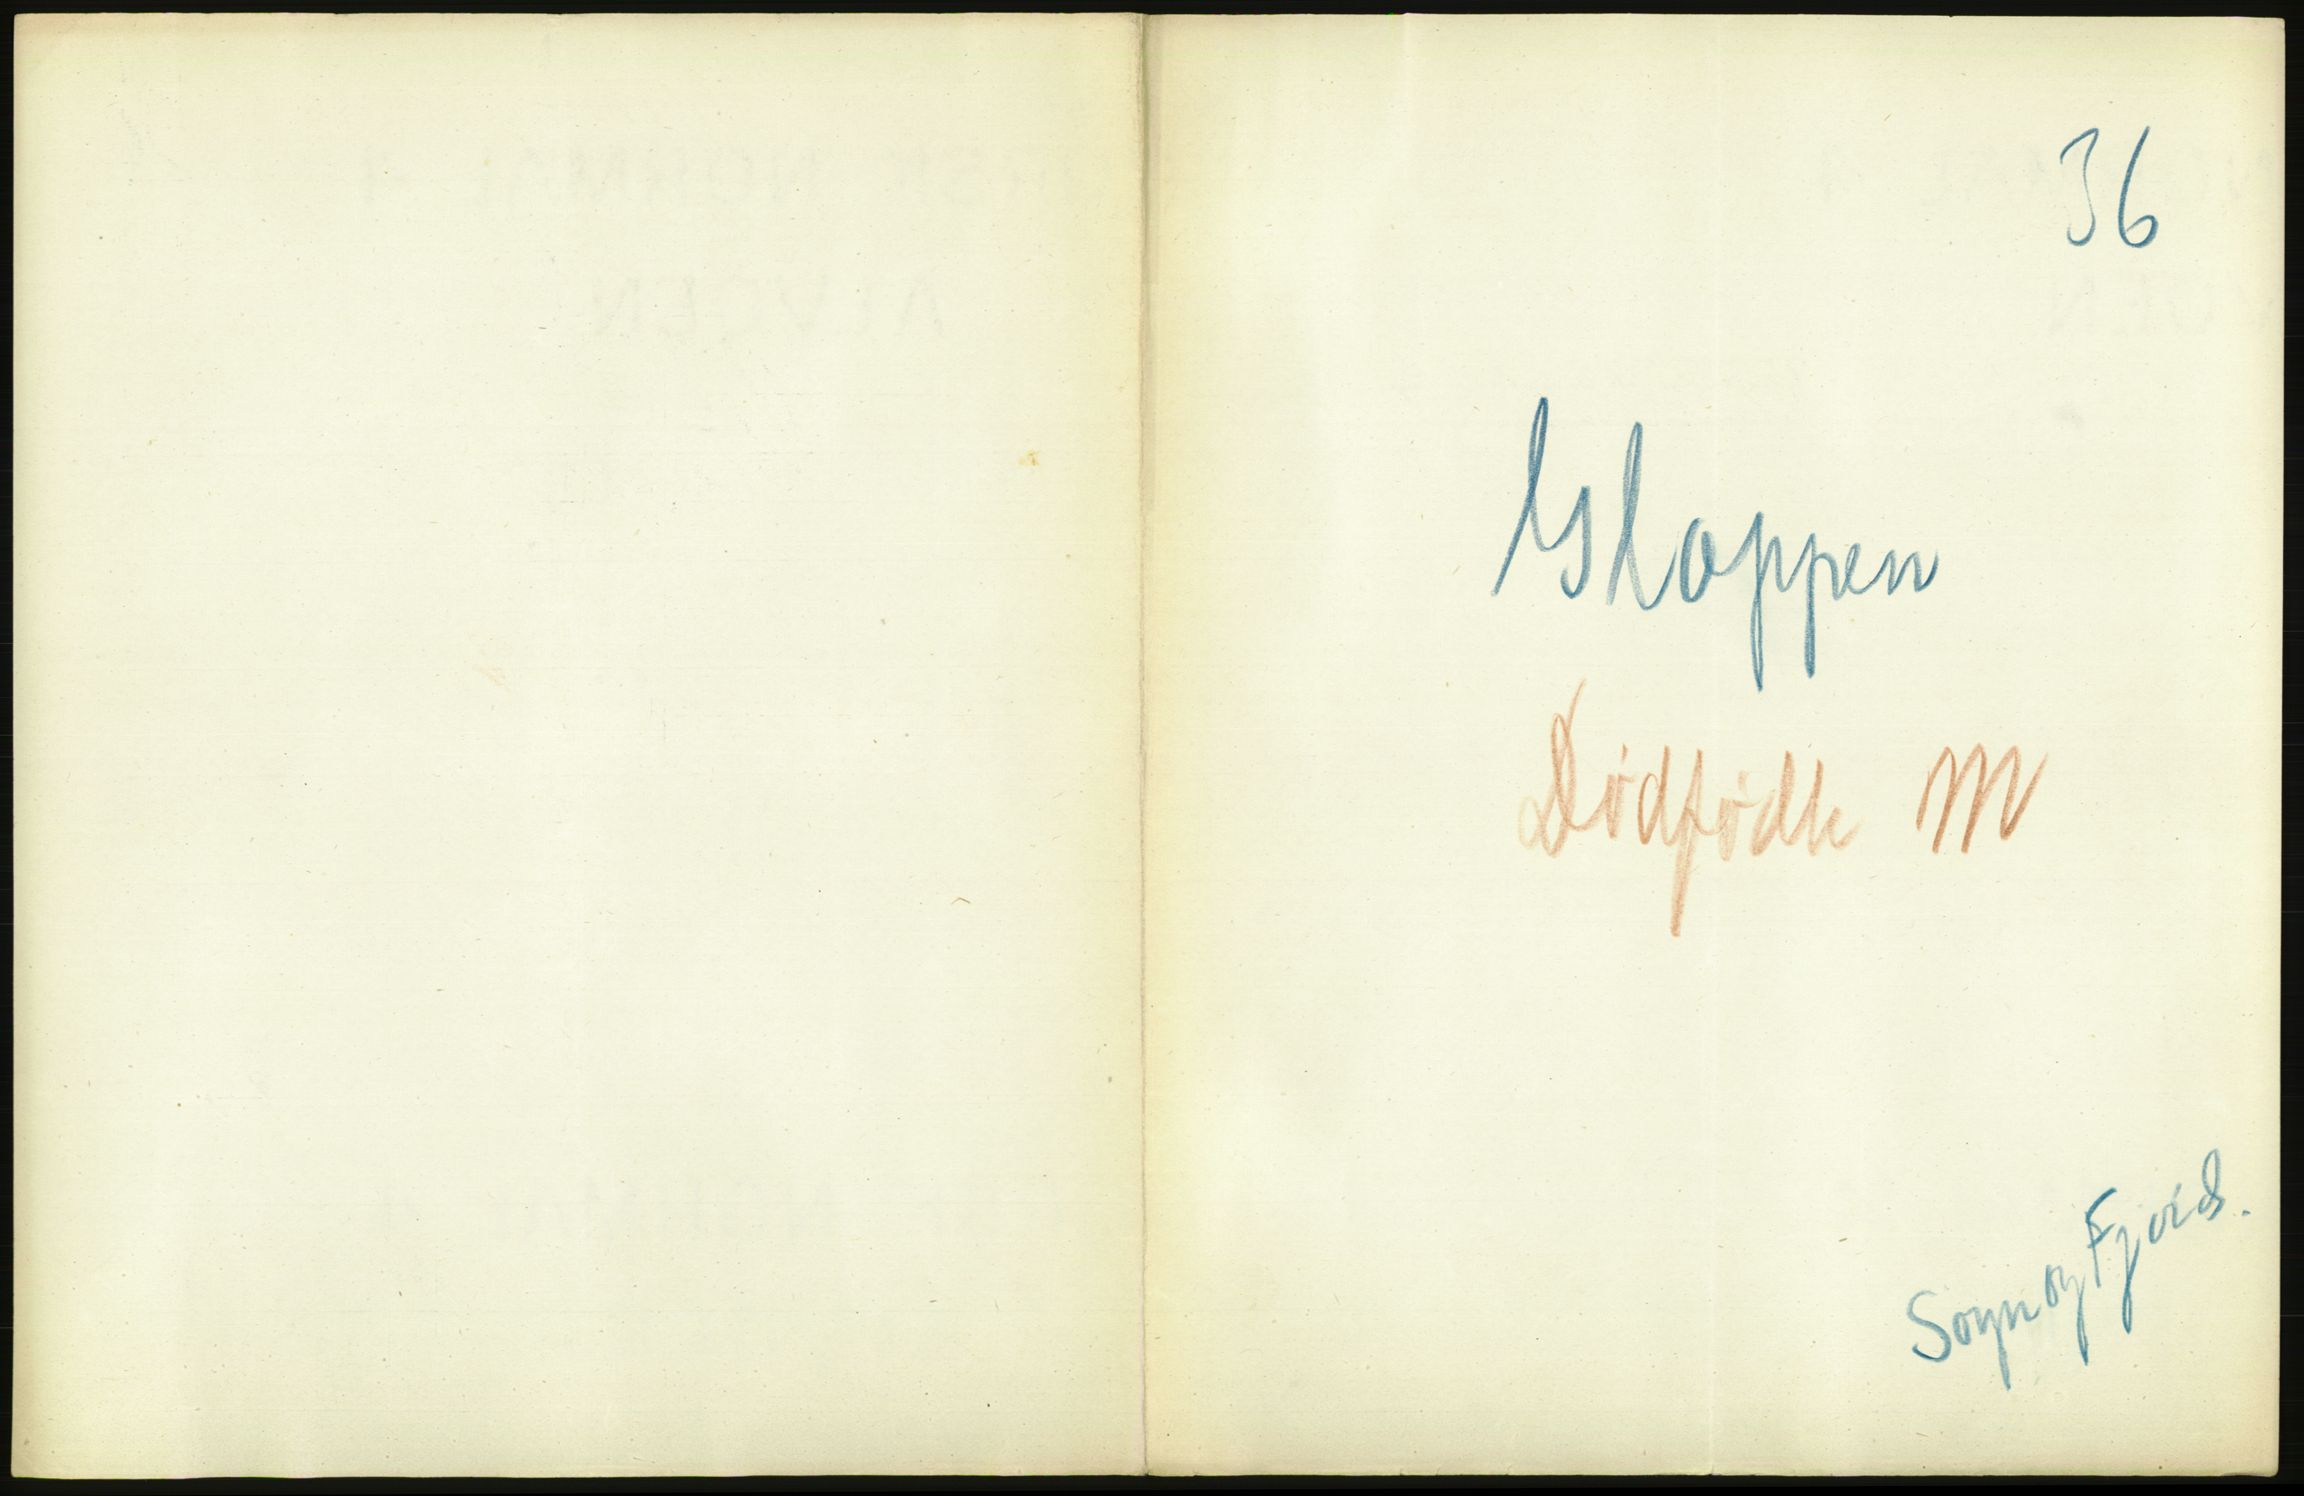 36
Gloppen
Dødfødte M
Sogn og Fjord.